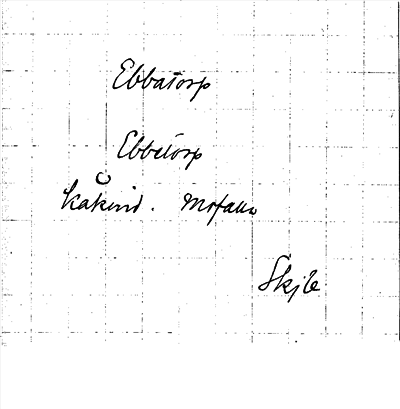 Ebbatorp
Ebbetorp
Kåkind. Mofalla
Skjb